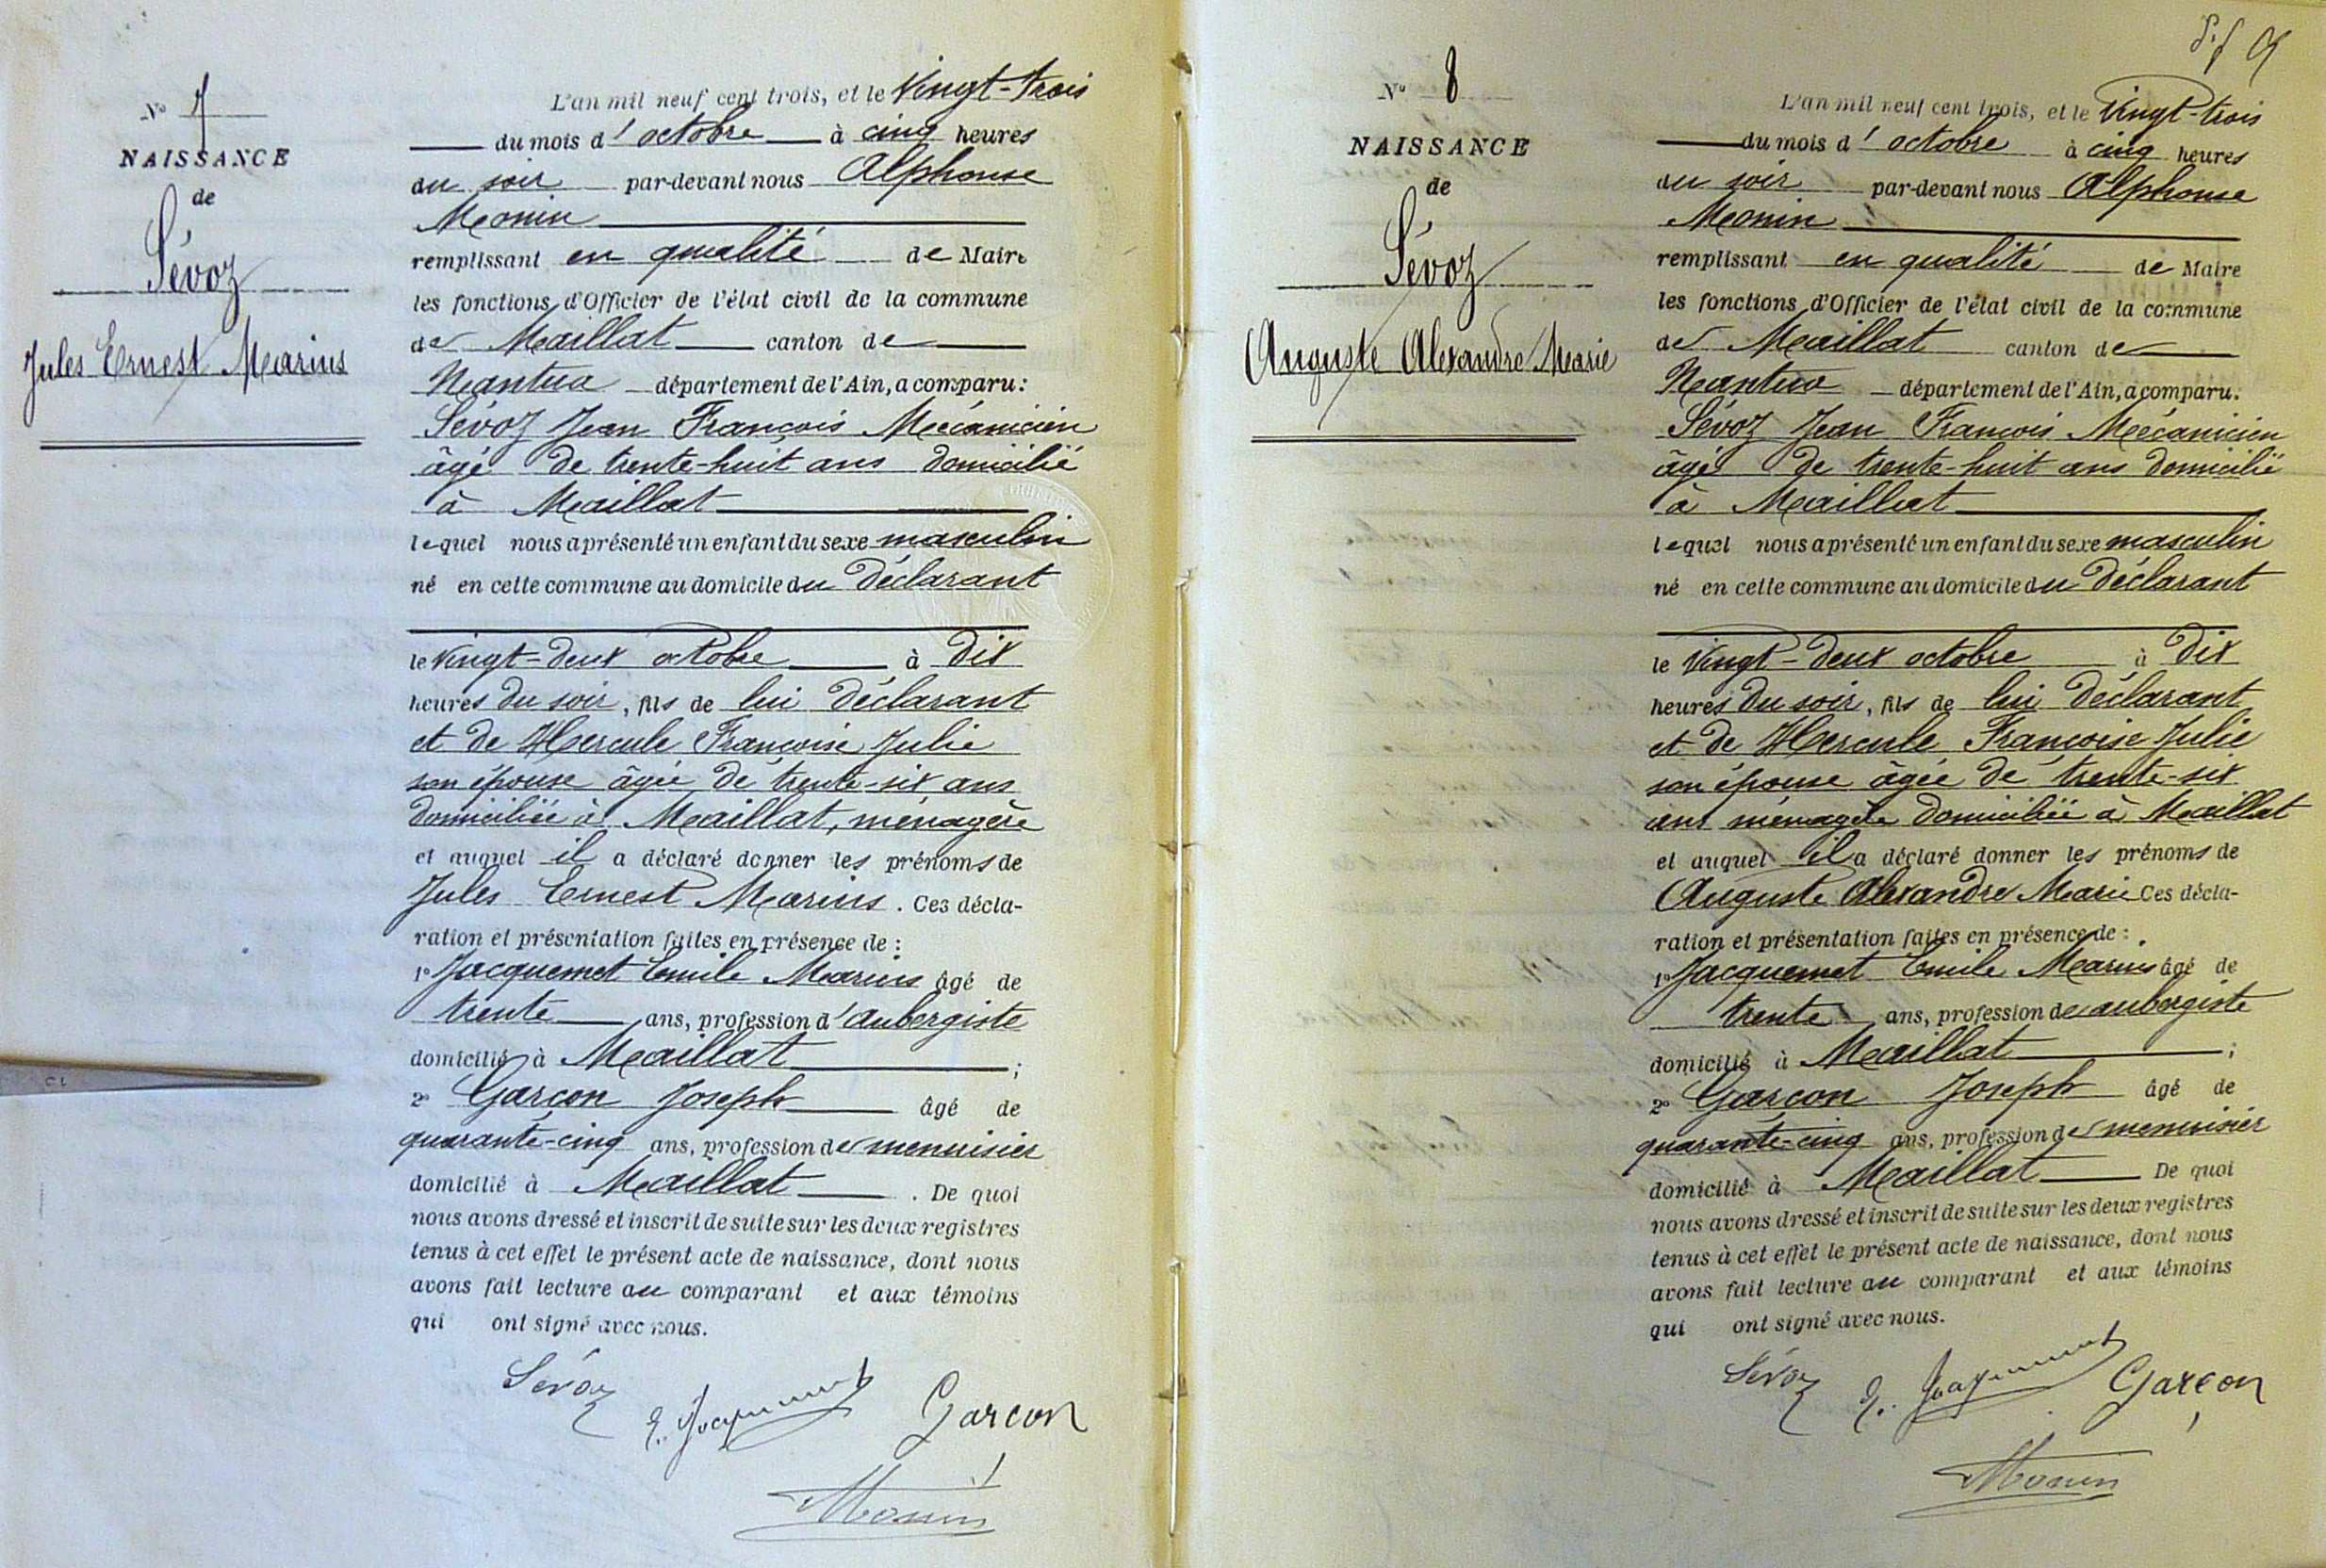 N° 7
NAISSANCE
de
Sévoz
Jules Ernest Marius
L'an mil neuf cent trois, et le Vingt-trois
du mois d'octobre à cinq heures
du soir par-devant nous Alphonse
Monin
remplissant en qualité de Maire
les fonctions d'Officier de l'état civil de la commune
de Maillat canton de
Nantua département de l'Ain, a comparu:
Sévoz Jean François Mécanicien
âgé de trente-huit ans domicilié
à Maillat
lequel nous a présenté un enfant du sexe masculin
né en cette commune au domicile du déclarant
le Vingt-deux octobre à dix
heures du soir, fils de lui déclarant
et de Hercule Françoise Julie
son épouse âgée de trente-six ans
domiciliée à Maillat, ménagère
et auquel il a déclaré donner les prénoms de
Jules Ernest Marius. Ces décla-
ration et présentation faites en présence de :
1° Jacquemet Emile Marius âgé de
trente ans, profession d'aubergiste
domicilié à Maillat ;
2° Garçon Joseph âgé de
quarante-cinq ans, profession de menuisier
domicilié à Maillat . De quoi
nous avons dressé et inscrit de suite sur les deux registres
tenus à cet effet le présent acte de naissance, dont nous
avons fait lecture au comparant et aux témoins
qui ont signé avec nous.
Sévoz E. Jacquemet Garçon
Monin
N° 8
NAISSANCE
de
Sévoz
Auguste Alexandre Marie
L'an mil neuf cent trois, et le Vingt-trois
du mois d'octobre à cinq heures
du soir par-devant nous Alphonse
Monin
remplissant en qualité de Maire
les fonctions d'Officier de l'état civil de la commune
de Maillat canton de
Nantua département de l'Ain, a comparu:
Sévoz Jean François Mécanicien
âgé de trente-huit ans domicilié
à Maillat
lequel nous a présenté un enfant du sexe masculin
né en cette commune au domicile du déclarant
le Vingt-deux octobre à dix
heures du soir, fils de lui déclarant
et de Hercule Françoise Julie
son épouse âgée de trente-six
ans ménagère domiciliée à Maillat
et auquel il a déclaré donner les prénoms de
Auguste Alexandre Marie Ces décla-
ration et présentation faites en présence de :
1° Jacquemet Emile Marius âgé de
trente ans, profession de aubergiste
domicilié à Maillat ;
2° Garçon Joseph âgé de
quarante-cinq ans, profession de menuisier
domicilié à Maillat De quoi
nous avons dressé et inscrit de suite sur les deux registres
tenus à cet effet le présent acte de naissance, dont nous
avons fait lecture au comparant et aux témoins
qui ont signé avec nous.
Sévoz E. Jacquemet Garçon
Monin